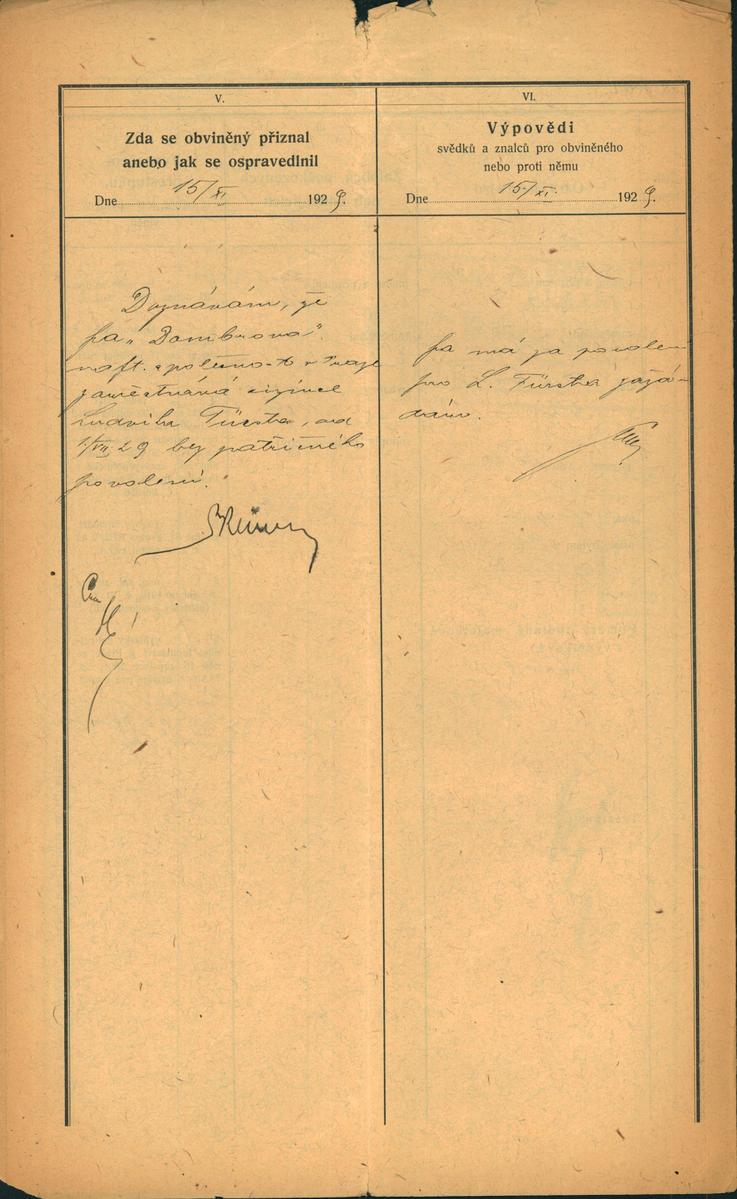 V.
Zda se obviněný přiznal
anebo jak se ospravedlnil
Dne 15/XI. 1929.
Doznávám, že
fa „Dombrova“
naft. společnost v Praze
zaměstnává cizince
Ludvíka Fürsta, od
1/VII 29 bez patřičného
povolení.
VI.
Výpovědi
svědků a znalců pro obviněného
nebo proti němu
Dne 15/XI. 1929.
fa má za povolení
pro L. Fürsta zažá-
dáno.